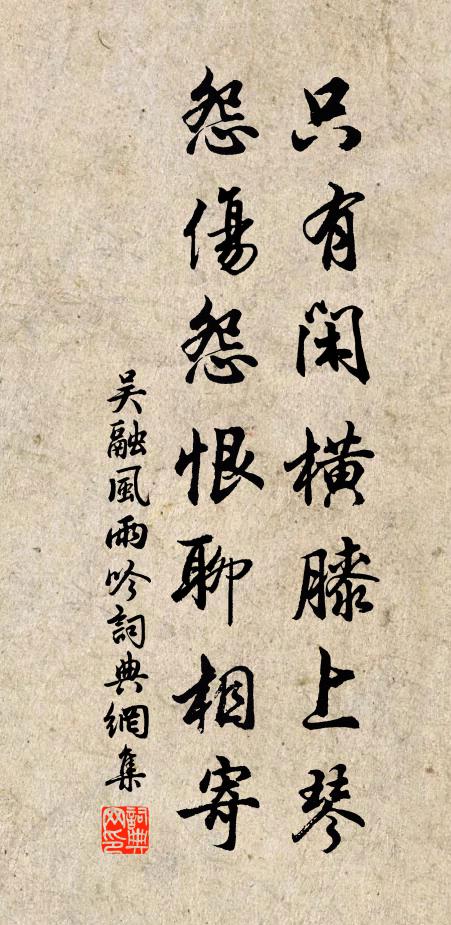 只有閑橫膝上琴
怨傷怨恨聊相寄
吴融風雨吟詞典網集
詞典網印